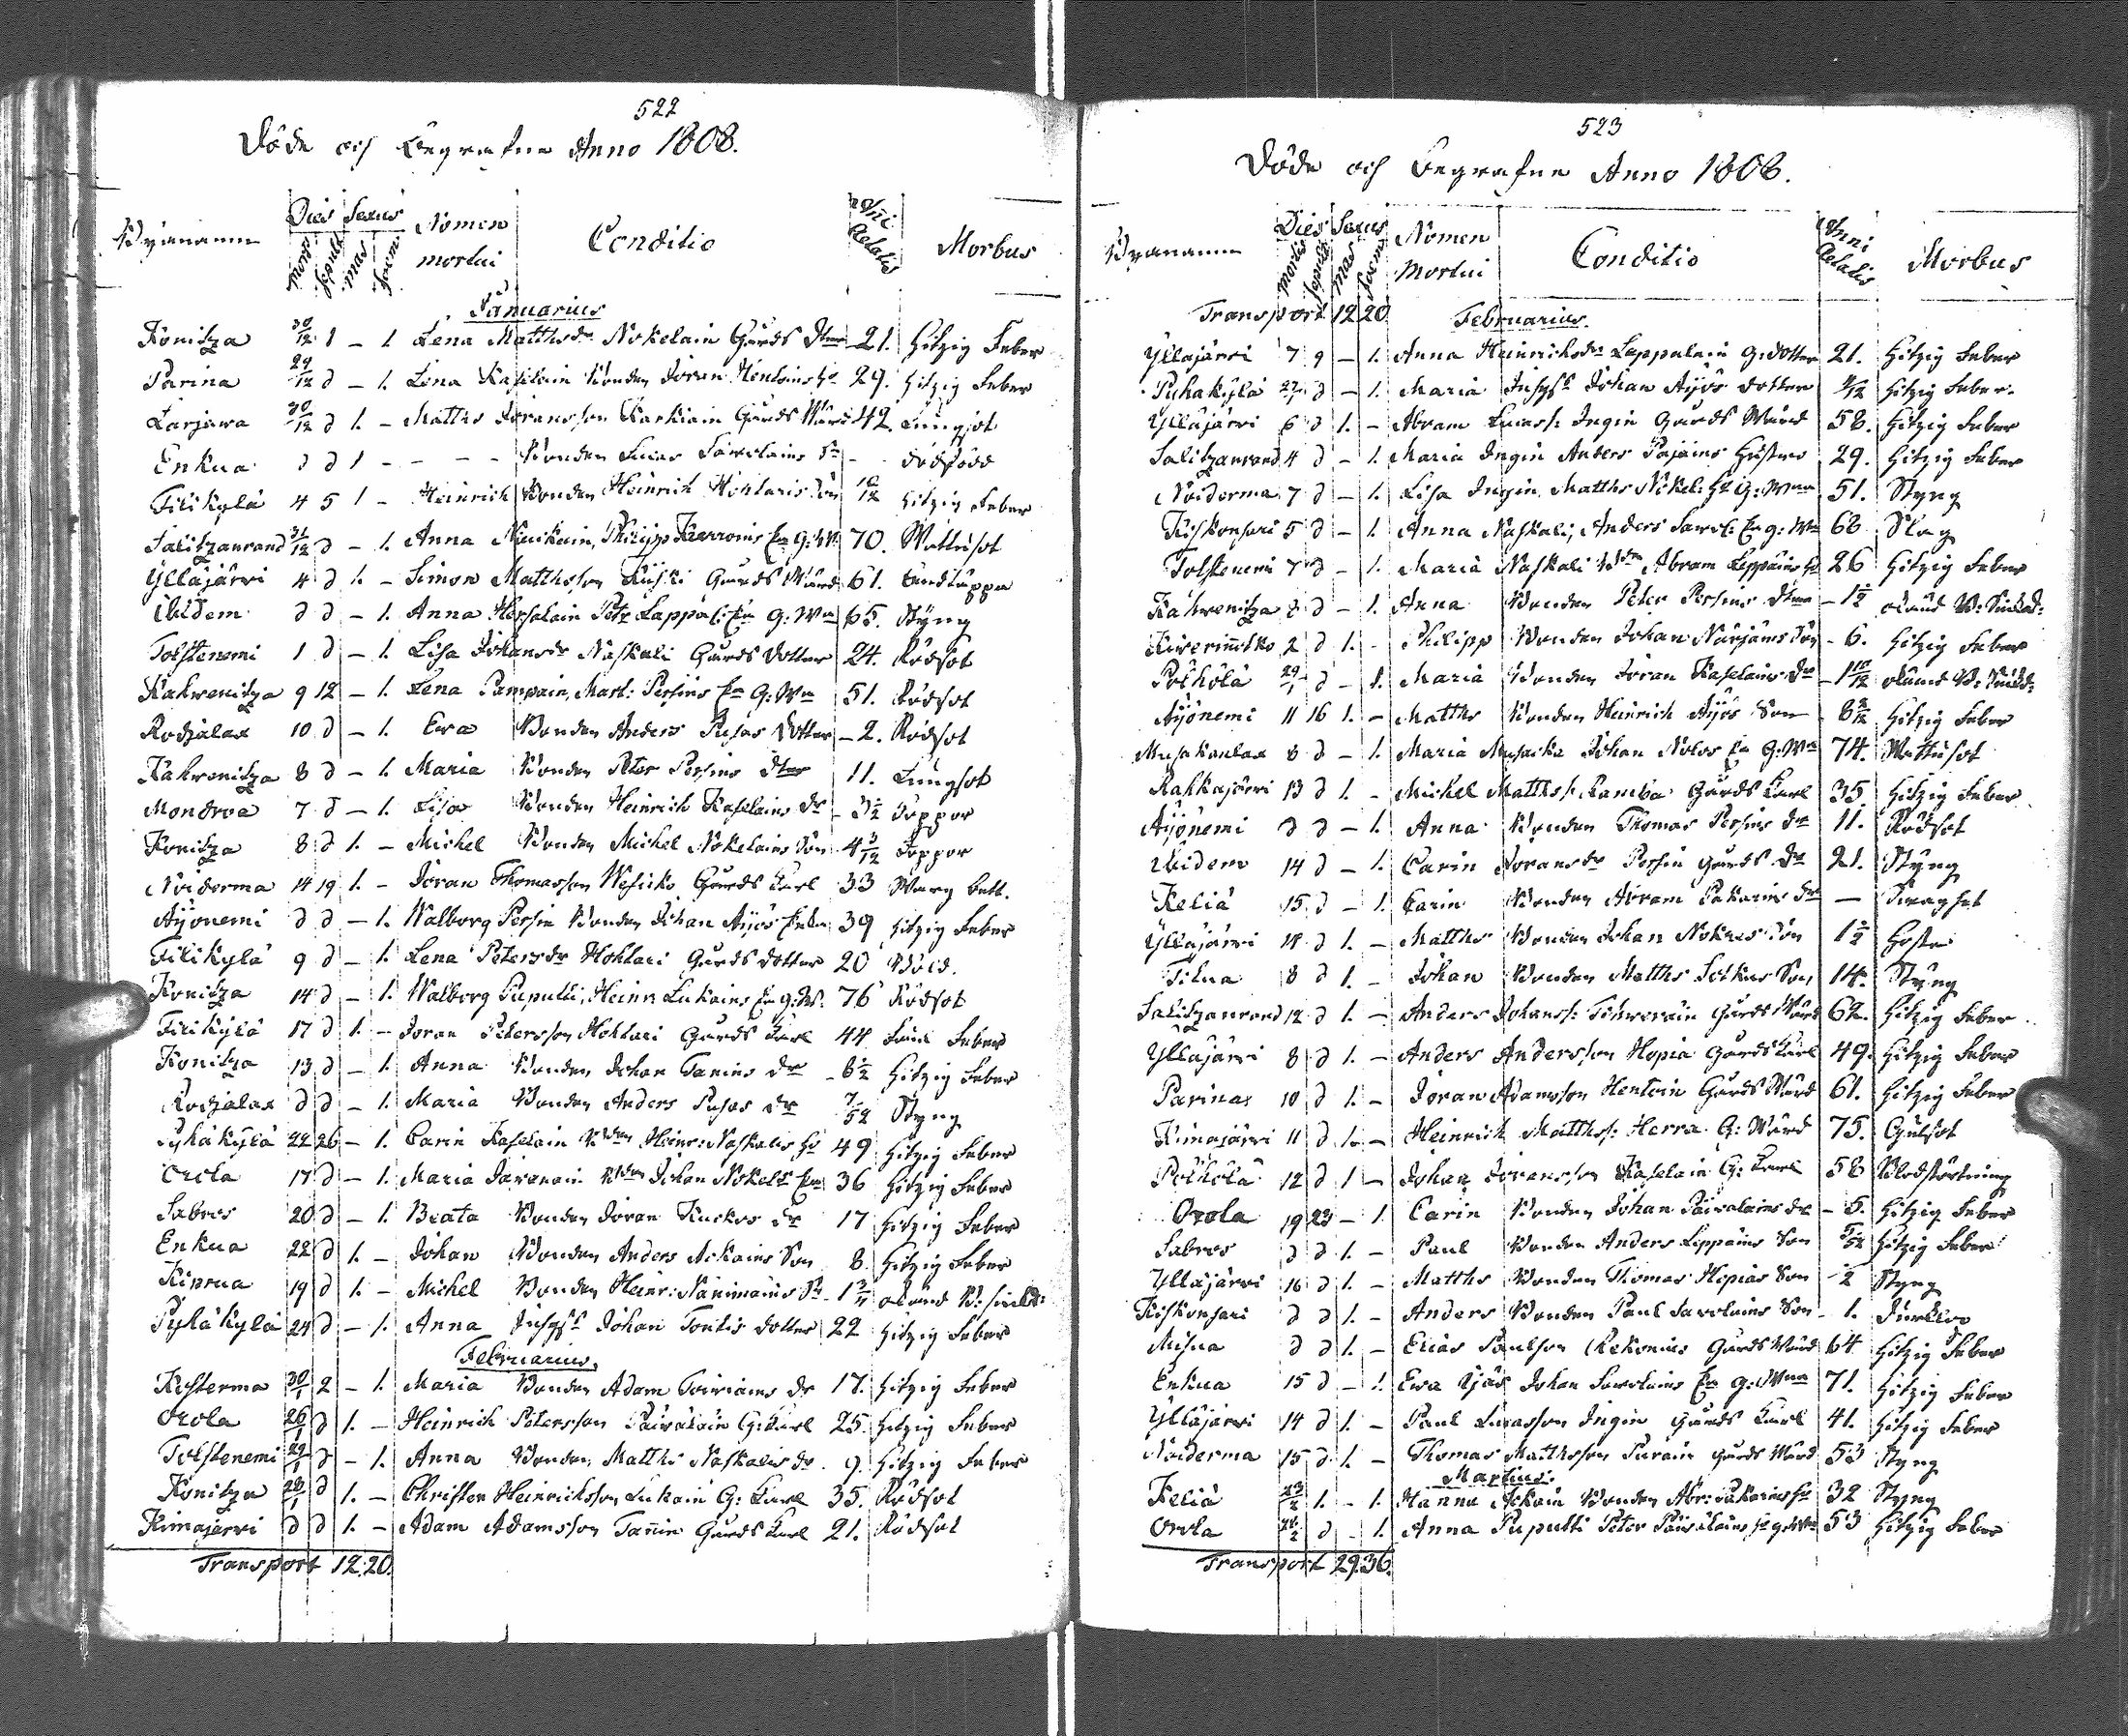 522
Döde och Begrafne Anno 1808.
Bÿanamn Dies Sexus Nomen mortui Conditio Añi Aetatis Morbus
mort: sepult mas foem:
Januarius
Konitza 30/12 1 - 1. Lena Matthsdr Nokelain Gårds Dttr 21. Hitzig Feber
Parina 29/12 d - 1. Lena Kaselain Bonden Jöran Hentoins Ho 29. Hitzig Feber
Larjawa 30/12 d 1. - Matths Jöransson Karkiain Gårds Wärd 42. Lungsot
Enkua d d 1 - - - - Bonden Lucas Sawolains Sn - dödfödd
Filikylä 4 5 1 - Heinrich Bonden Heinrich Hohtaris Son 10/12 Hitzig Feber
Salitzanrand 31/12 d - 1. Anna Philipp Enk: G: W. 70. Wattusot
Ylläjärvi 4 d 1. - Simon Matthsson Kuiski Gårds Wärd 61. Andtäppa
Ibidem d d - 1. Anna Hesselain Petr Lappal: Enk: G: Wna 65. Styng
Tolstenemi 1 d - 1. Lisa Johansdr Naskali Gårds Dotter 24. Rödsot
Kahwenitza 9 12 - 1. Lena Pampain, Mart: Persins Enk G: Wa 51. Rödsot
Rodjalax 10 d - 1. Ewa Bonden Anders Pusas Dotter - 2. Rödsot
Kahwenitza 8 d - 1. Maria Bonden Peter Persins Dttr 11. Lungsot
Mondroa 7 d - 1. Lisa Bonden Heinrich Kaselains Dr - 3½ Koppor
Konitza 8 d 1. - Michel Bonden Michel Nokelains Son 4 3/12 Koppor
Noiderma 14 19 1. - Jöran Thomasson Wesicko Gårds Karl 33 Warg bett.
Äÿönemi d d - 1. Walborg Persin Bonden Johan Äijös Enka 39 Hitzig Feber
Filikylä 9 d - 1. Lena Petersdr Hohtari Gårds Dotter 20 Böld.
Konitza 14 d - 1. Walborg Puputti, Heinr Lukains Enk G: W. 76 Rödsot
Filikylä 17 d 1. - Jöran Petersson Hohtari Gårds Karl 44 Feber
Konitza 13 d - 1. Anna Bonden Johan Tanins Dr - 6½ Hitzig Feber
Rodjalax d d - 1. Maria Bonden Anders Pusas Dr 7/52 Styng
Pyhäkylä 22 26 - 1. Carin Kaselain Bden Heinr: Naskalis Ho 49 Hitzig Feber
Orola 17 d - 1. Maria Bden Johan Nokel: Enka 36 Hitzig Feber
Sabros 20 d - 1. Beata Bonden Jöran Kuckos Dr 17 Hitzig Feber
Enkua 22 d 1. - Johan Bonden Anders Ackains Son 8. Hitzig Feber
Kinrua 19 d 1. - Michel Bonden Heinr: Nänimäins Sn - okänd B: siukd:
Pyhäkylä 24 d - 1. Anna Inhyss Johan Tontis Dotter 22 Hitzig Feber
Februarius.
Kosterma 30/1 2 - 1. Maria Bonden Adam Dr 17. Hitzig Feber
Orola 26/1 d 1. - Heinrich Petersson Päiwäläin G: Karl 25. Hitzig Feber
Tolstenemi 29/1 d - 1. Anna Bonden Matths Naskalis Dr. 9. Hitzig Feber
Konitza 28/1 d 1. - Christer Heinricksson Lukain G: Karl 35. Rödsot
Kimajärvi d d 1. - Adam Adamsson Tañin Gårds Karl 21. Rödsot
Transport 12. 20.
523
Döde och Begrafne Anno 1808.
Bÿanamn Dies Sexus Nomen Mortui Conditio Anni Aetatis Morbus
Mortis Sepult Mas Foem
Transport 12 20 Februarius.
Ylläjärvi 7 9 - 1. Anna Heinrichsdr Lappalain G: Dotter 21. Hitzig Feber
Puhakylä 27/1 d - 1. Maria Inhyss Johan Äÿös Dotter Hitzig Feber.
Ylläjärvi 6 d 1. - Abram Lucass: Ingin Gårds Wärd 58. Hitzig Feber
Salitzanrand 4 d - 1. Maria Ingin Anders Pajains Hustru 29. Hitzig Feber
Noiderma 7 d - 1. Lisa Ingin Matths Nokel: Ho G: Wna 51. Styng
Kiskonsari 5 d - 1. Anna Naskali, Anders Sawol: Enk G: Wa 68 Slag
Tolstenemi 7 d - 1. Maria Naskali Bdn Abram Leppäins Ho 26 Hitzig Feber
Kahwenitza 2 d - 1. Anna Bonden Peter Persins Dttr - 1½ okänd B: Siukd:
2 d 1. - Philipp Bonden Johan Närjäins Son - 6. Hitzig Feber
Pölhölä 29/1 d - 1. Maria Bonden Jöran Kaselains Dr - 1 10/12 okänd B: Siukd:
Äÿönemi 11 16 1. - Matths Bonden Heinrich Äÿös Son - Hitzig Feber
Musakanlax 8 d - 1. Maria Musacka Johan Nolos Enk G: Wa 74. Wattusot
Rahkajärvi 13 d 1. - Michel Matths: Ramba Gårds Karl 35 Hitzig Feber
Äÿönemi d d - 1. Anna Bonden Thomas Persins Dr 11. Rödsot
Ibidem 14 d - 1. Carin Joransdr Persin Gårds Dr 21. Styng
Keliä 15 d - 1. Carin Bonden Abram Pakarins Dr - Swaghet
Ylläjärvi 14 d 1. - Matths Bonden Johan Nokias Son 1½ Hosta
Tihua 8 d 1. - Johan Bonden Matths Son 14. Styng
Salitzanrand 12 d 1. - Anders Johanss: Tihweräin Gårds Wärd 62. Hitzig Feber
Ylläjärvi 8 d 1. - Anders Andersson Hopia Gårds Karl 49. Hitzig Feber
Parinax 10 d 1. - Jöran Adamsson Hentoin Gårds Wärd 61. Hitzig Feber
Kimajärvi 11 d 1. - Heinrich Matthss: Herra G: Wärd 75. Gulsot
Pölhölä 12 d 1 - Johan Jöransson Kaselain G: Karl 58 Blodstörtning
Orola 19 23 - 1. Carin Bonden Johan Päiwäläins Dr - 5. Hitzig Feber
Sabros d d 1. - Paul Bonden Anders Leppäins Son Hitzig Feber
Ylläjärvi 16 d 1. - Matths Bonden Thomas Hopias Son - 2 Styng
Kiskonsari d d 1. - Anders Bonden Paul Sawolains Son - 1.
Misua d d 1. - Elias Paulson Rekonius Gårds Wärd 64 Hitzig Feber
Enkua 15 d - 1. Ewa Äjäs Johan Sawolains Enk G: Wna 71. Hitzig Feber
Ylläjärvi 14 d 1. - Paul Lucasson Ingin Gårds Karl 41. Hitzig Feber
Noiderma 15 d 1. - Thomas Matthsson Purain Gårds Wärd 53 Styng
Martius.
Keliä 23/2 1. - 1. Hanna Ackain Bonden Abr: Pakarins Ho 32 Styng
Orola d - 1. Anna Puputti Peter Päiwäläins Ho G: Wna 53 Hitzig Feber
Transport 29. 36.